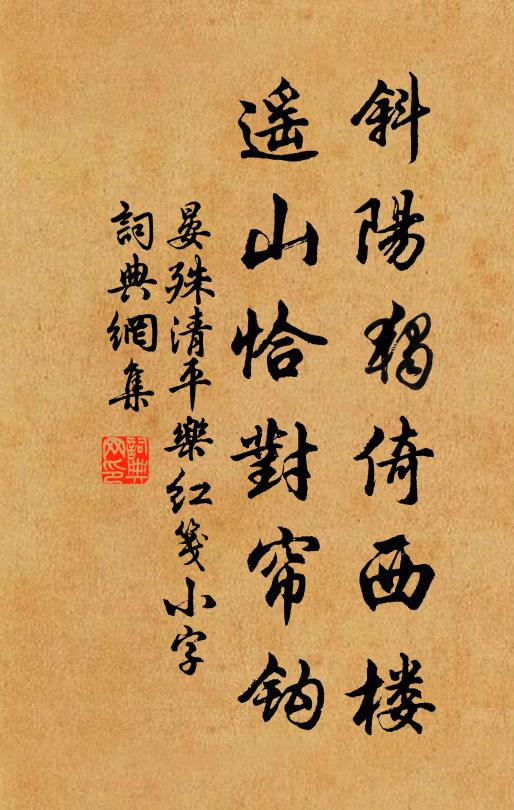 斜陽獨倚西楼
遥山恰對帘鈎
晏殊清平樂红箋小字
詞典網集
詞典网印